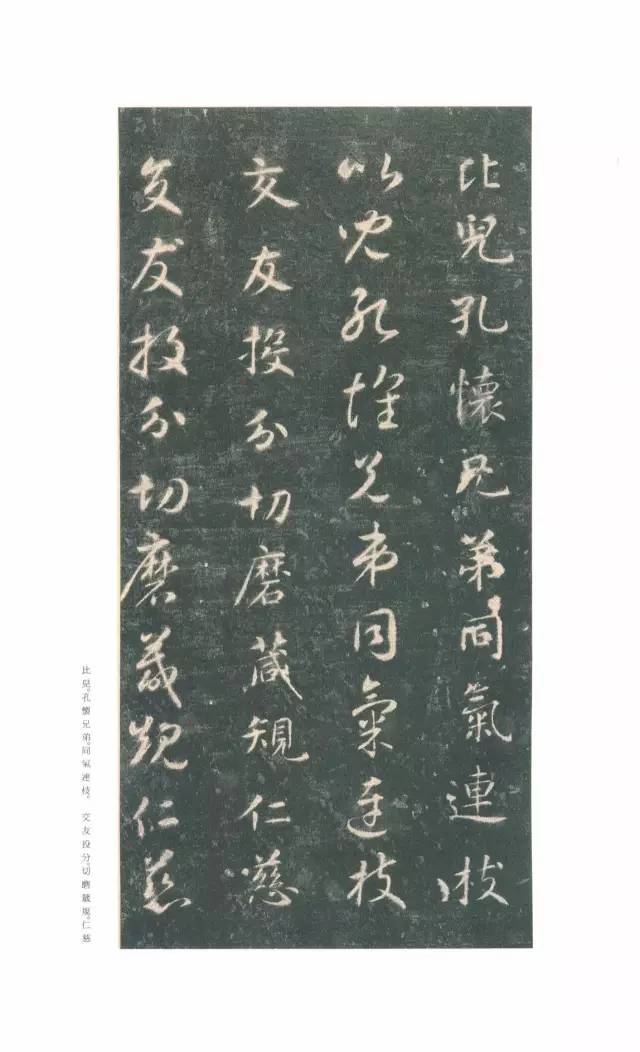 比兒孔懷兄弟同氣連枝
比兒孔懷兄弟同氣連枝
交友投分切磨葴規仁慈
交友投分切磨葴規仁慈
比兒。孔懷兄弟。同氣連枝。 交友投分。切磨葴規。仁慈